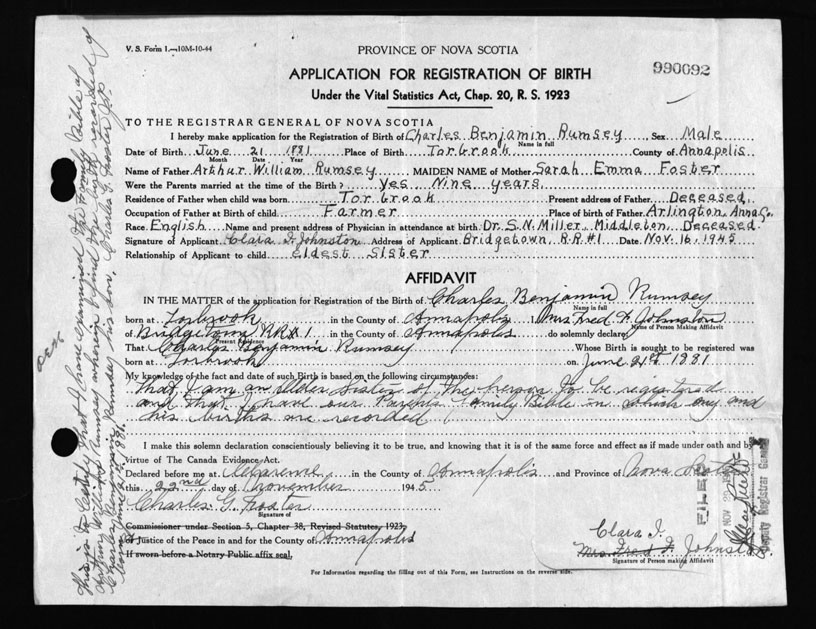 V. S. Form 1.—10M-10-44
PROVINCE OF NOVA SCOTIA
990692
APPLICATION FOR REGISTRATION OF BIRTH
Under the Vital Statistics Act, Chap. 20, R. S. 1923
TO THE REGISTRAR GENERAL OF NOVA SCOTIA
I hereby make application for the Registration of Birth of Charles Benjamin Rumsey Sex Male
Name in full
Date of Birth June 21 1881 Place of Birth Torbrook County of Annapolis
Month Date Year
Name of Father Arthur William Rumsey MAIDEN NAME of Mother Sarah Emma Foster
Were the Parents married at the time of the Birth? Yes Nine years.
Residence of Father when child was born Torbrook Present address of Father Deceased
Occupation of Father at Birth of child Farmer Place of birth of Father Arlington, Anna Co.
Race English Name and present address of Physician in attendance at birth Dr. S. N. Miller, Middleton, Deceased.
Signature of Applicant Clara I. Johnston Address of Applicant Bridgetown, R.R.#1 Date Nov. 16, 1945
Relationship of Applicant to child Eldest Sister
AFFIDAVIT
IN THE MATTER of the application for Registration of the Birth of Charles Benjamin Rumsey
Name in full
born at Torbrook in the County of Annapolis I Mrs Fred F. Johnston
Name of Person Making Affidavit
of Bridgetown RR#1 in the County of Annapolis do solemnly declare
Present Residence
That Charles Benjamin Rumsey Whose Birth is sought to be registered was
born at Torbrook on June 21st 1881
My knowledge of the fact and date of such Birth is based on the following circumstances:
That I am an older sister of the person to be registered
and that I have our Parents Family Bible in which my and
his births are recorded
I make this solemn declaration conscientiously believing it to be true, and knowing that it is of the same force and effect as if made under oath and by
Virtue of The Canada Evidence Act.
Declared before me at Clarence in the County of Annapolis and Province of Nova Scotia
this 22nd day of November 1945
Charles G. Foster
Signature of
Commissioner under Section 5, Chapter 38, Revised Statutes, 1923,
or Justice of the Peace in and for the County of Annapolis
If sworn before a Notary Public affix seal.
Clara I.
Mrs. Fred F. Johnston
Signature of Person making Affidavit
For Information regarding the filling out of this Form, see Instructions on the reverse side.
FILED
Deputy Registrar General
This is to Certify that I have examined the Family Bible of
Arthur William Rumsey wherein I find the birth recorded of
Charles Benjamin Rumsey his son. Charles G. Foster J.P.
born June 21 1881.